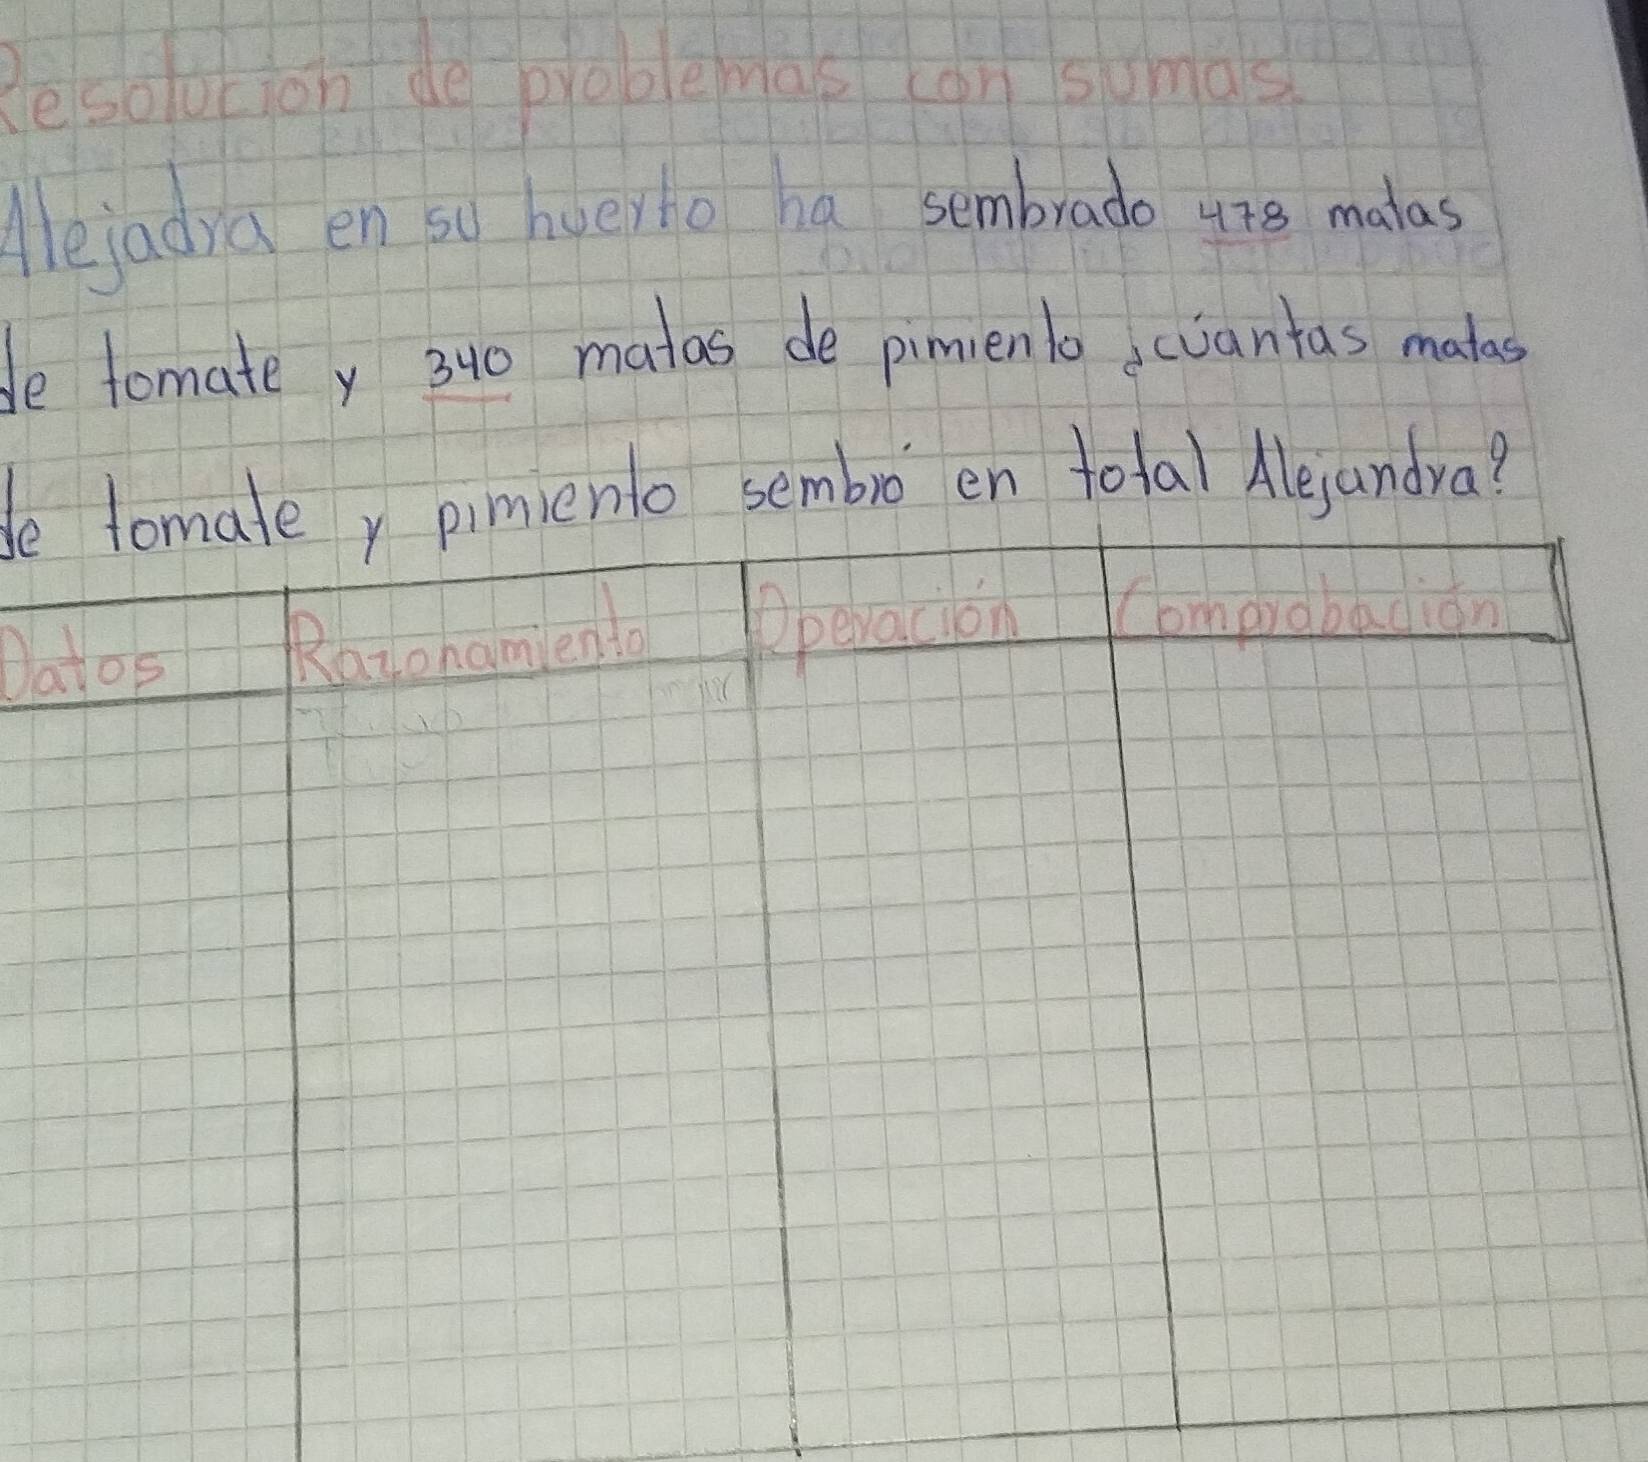 Resolución de problemas con sumas
Alejadra en su huerto ha sembrado 478 matas
de tomate y 340 matas de pimiento ¿cuántas matas
de tomate y pimiento sembró en total Alejandra?
Datos Razonamiento Operación Comprobación